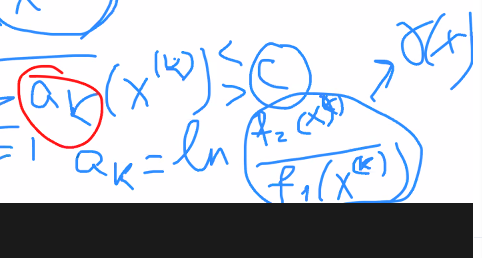 γ(x)
a_k (x^(k)) ≶ C
= 1 a_k = ln f₂(x^(k)) / f₁(x^(k))